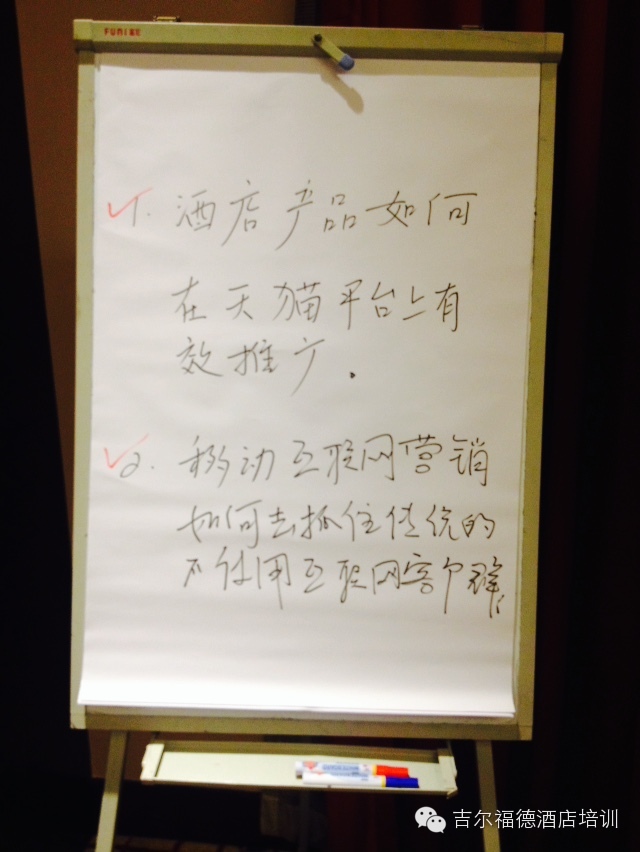 FUNI
√1. 酒店产品如何
在天猫平台上有
效推广.
√2. 移动互联网营销
如何去抓住传统的
不使用互联网客户群
吉尔福德酒店培训